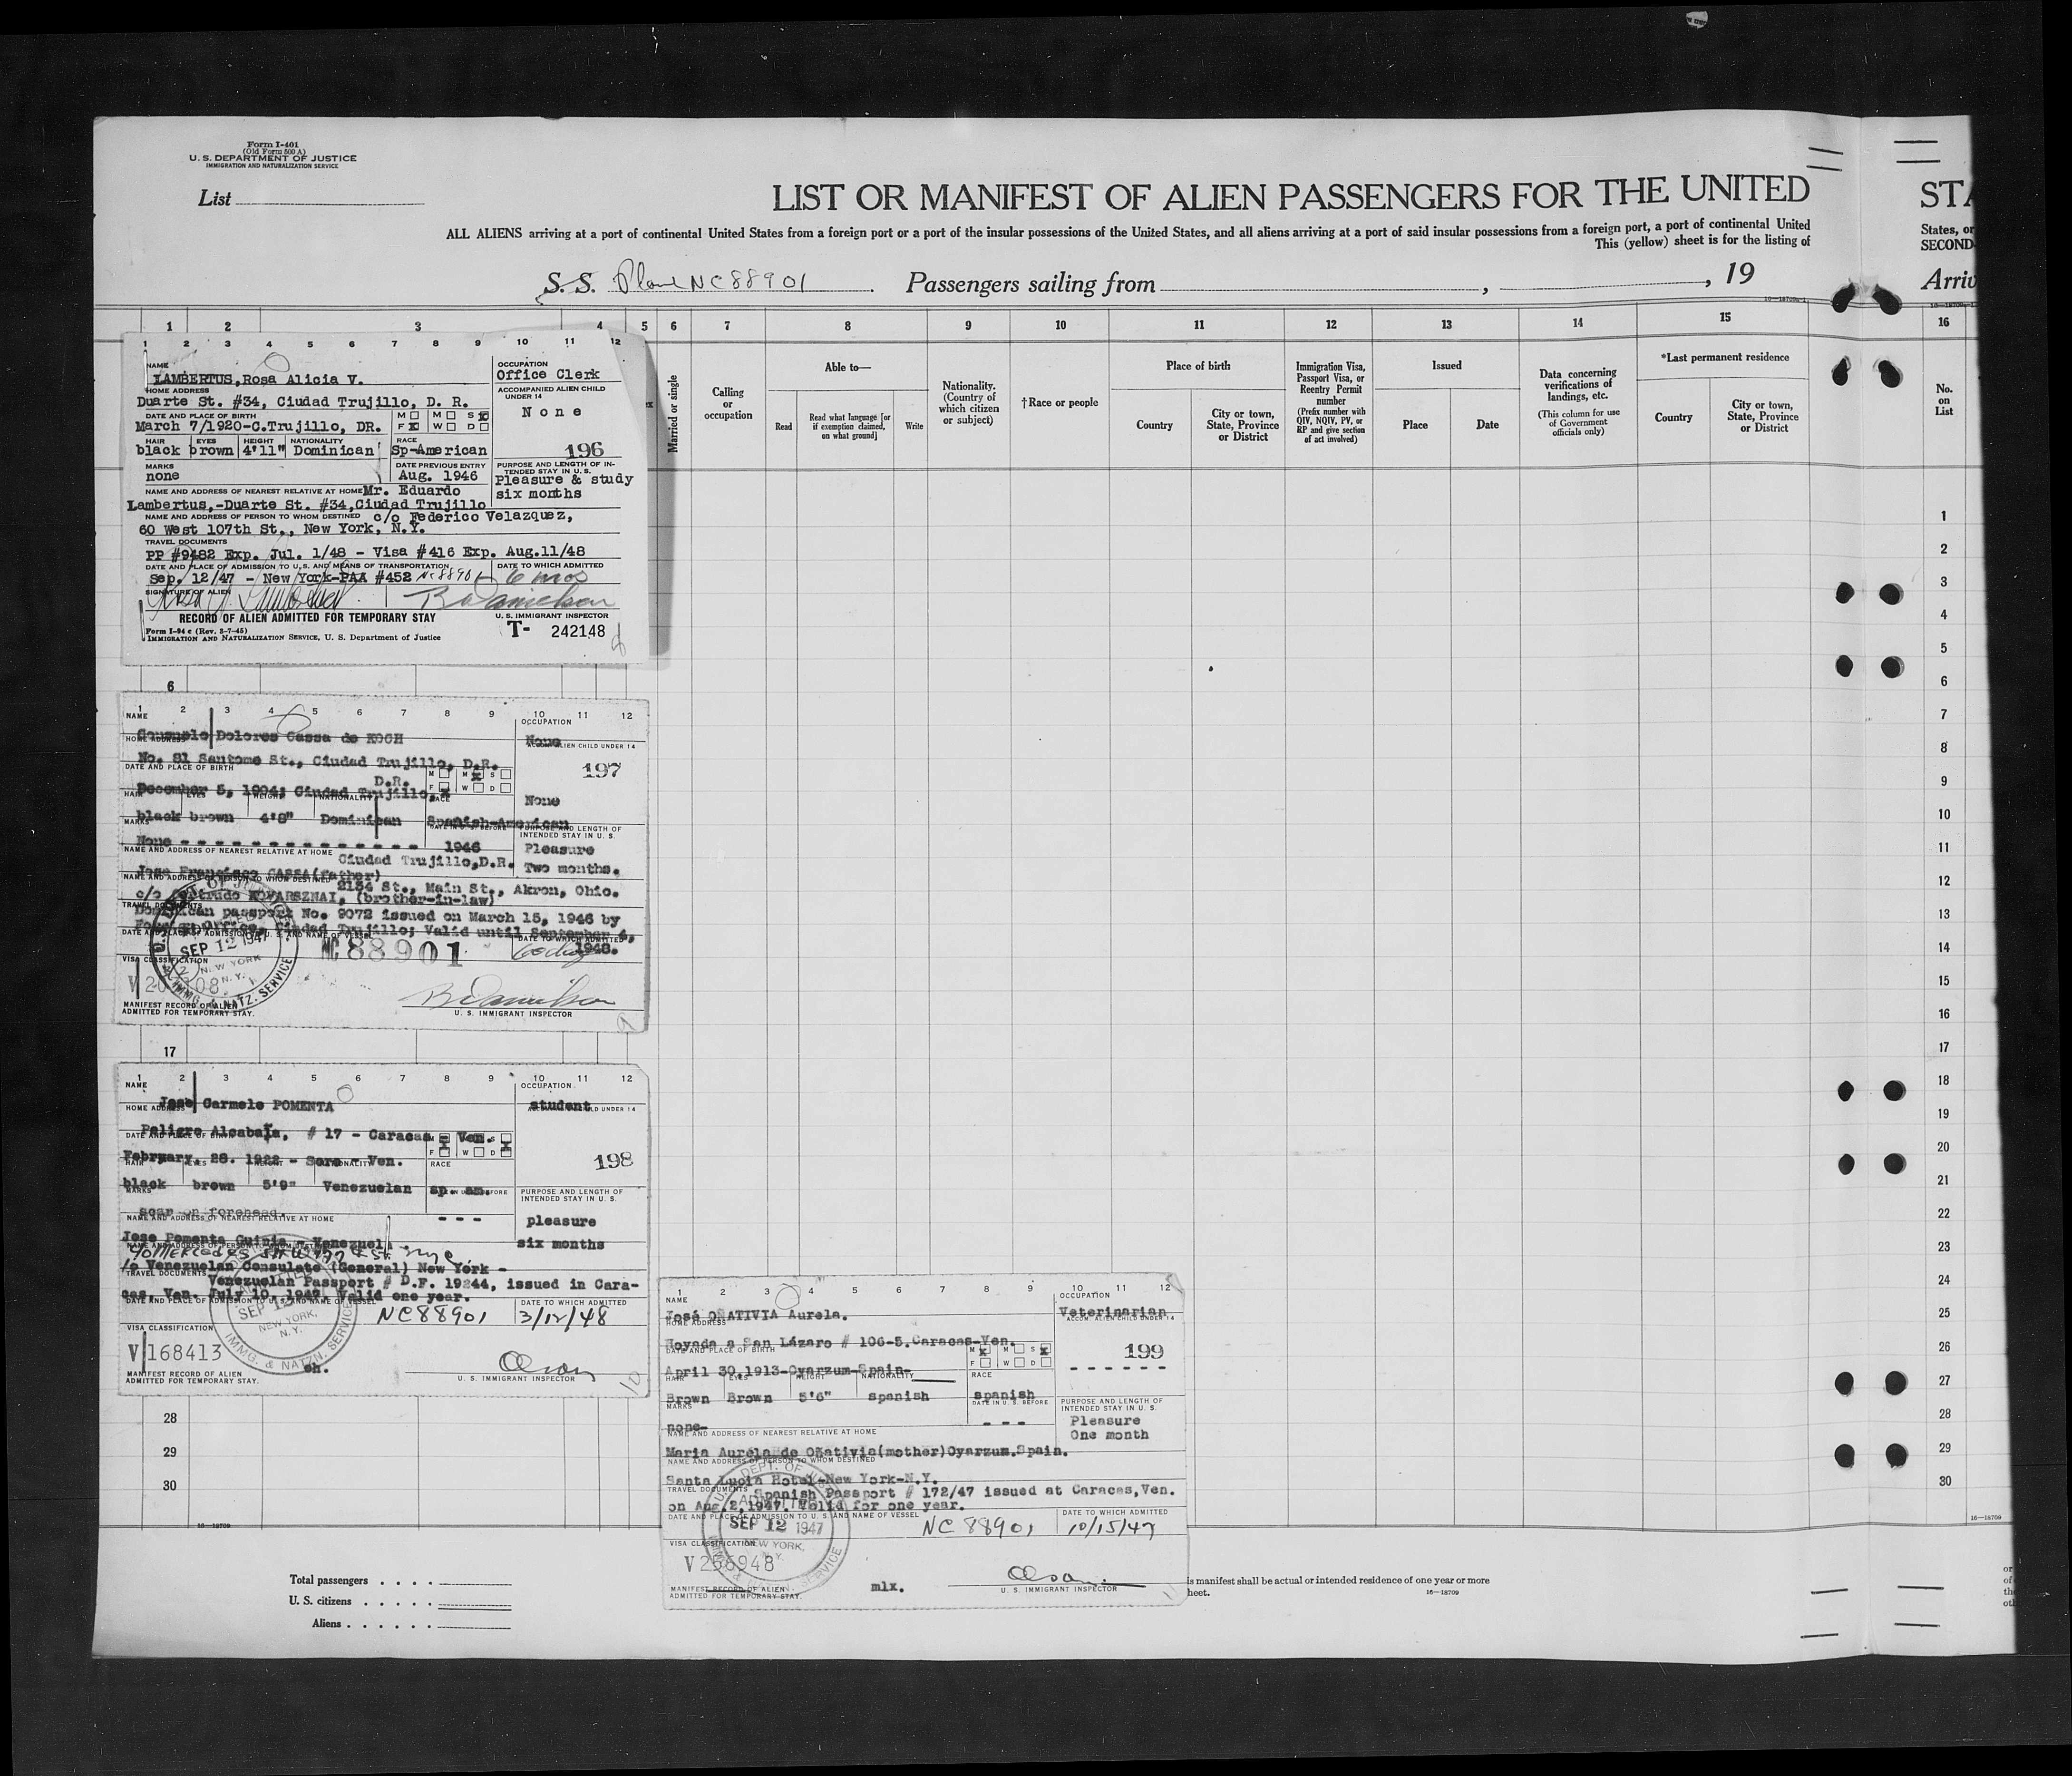 Form I-401
(Old Form 500 A)
U. S. DEPARTMENT OF JUSTICE
IMMIGRATION AND NATURALIZATION SERVICE
List
LIST OR MANIFEST OF ALIEN PASSENGERS FOR THE UNITED
STA
ALL ALIENS arriving at a port of continental United States from a foreign port or a port of the insular possessions of the United States, and all aliens arriving at a port of said insular possessions from a foreign port, a port of continental United
States, or
This (yellow) sheet is for the listing of
SECOND
S. S. Plane NC88901 Passengers sailing from , , 19
Arriv
16—18709a-1
1 2 3 4 5 6 7 8 9 10 11 12 13 14 15 16
Married or single
Calling or occupation
Able to—
Read
Read what language [or if exemption claimed, on what ground]
Write
Nationality. (Country of which citizen or subject)
†Race or people
Place of birth
Country
City or town, State, Province or District
Immigration Visa, Passport Visa, or Reentry Permit number
(Prefix number with QIV, NQIV, PV, or RP and give section of act involved)
Issued
Place
Date
Data concerning verifications of landings, etc.
(This column for use of Government officials only)
*Last permanent residence
Country
City or town, State, Province or District
No. on List
1 2 3 4 5 6 7 8 9 10 11 12
NAME
LAMBERTUS, Rosa Alicia V.
OCCUPATION
Office Clerk
HOME ADDRESS
Duarte St. #34, Ciudad Trujillo, D. R.
ACCOMPANIED ALIEN CHILD UNDER 14
None
DATE AND PLACE OF BIRTH
March 7/1920-C.Trujillo, DR.
M M S
F W D
HAIR EYES HEIGHT NATIONALITY RACE
black brown 4'11" Dominican Sp-American
196
MARKS
none
DATE PREVIOUS ENTRY
Aug. 1946
PURPOSE AND LENGTH OF INTENDED STAY IN U. S.
Pleasure & study
six months
NAME AND ADDRESS OF NEAREST RELATIVE AT HOME Mr. Eduardo
Lambertus,-Duarte St. #34,Ciudad Trujillo
NAME AND ADDRESS OF PERSON TO WHOM DESTINED c/o Federico Velazquez,
60 West 107th St., New York, N.Y.
TRAVEL DOCUMENTS
PP #9482 Exp. Jul. 1/48 - Visa #416 Exp. Aug.11/48
DATE AND PLACE OF ADMISSION TO U. S. AND MEANS OF TRANSPORTATION
DATE TO WHICH ADMITTED
Sep. 12/47 - New York-PAA #452 NC88901 6 mos
SIGNATURE OF ALIEN
RECORD OF ALIEN ADMITTED FOR TEMPORARY STAY
U. S. IMMIGRANT INSPECTOR
Form I-94 c (Rev. 5-7-45)
IMMIGRATION AND NATURALIZATION SERVICE, U. S. Department of Justice
T- 242148
6
1 2 3 4 5 6 7 8 9 10 11 12
NAME
OCCUPATION
Consuelo Dolores Cassa de KOCH
None
HOME ADDRESS
ACCOM. ALIEN CHILD UNDER 14
No. 81 Santome St., Ciudad Trujillo, D.R.
197
DATE AND PLACE OF BIRTH
M M S
F W D
D.R.
December 5, 1904; Ciudad Trujillo,
None
HAIR EYES HEIGHT NATIONALITY RACE
black brown 4'8" Dominican Spanish-American
MARKS
DATE IN U. S. BEFORE
PURPOSE AND LENGTH OF INTENDED STAY IN U. S.
None - - - - - - - - - - - - - - -
1946
Pleasure
Two months.
NAME AND ADDRESS OF NEAREST RELATIVE AT HOME
Ciudad Trujillo,D.R.
Jose Francisco CASSA(father)
NAME AND ADDRESS OF PERSON TO WHOM DESTINED
2154 St., Main St., Akron, Ohio.
c/o KOVARSZNAI, (brother-in-law)
TRAVEL DOCUMENTS
Dominican passport No. 9072 issued on March 15, 1946 by
Foreign Office, Ciudad Trujillo; Valid until September 4,
1948.
DATE AND PLACE OF ADMISSION TO U. S. AND NAME OF VESSEL
DATE TO WHICH ADMITTED
SEP 12 1947
NEW YORK
N. Y.
IMMG. & NATZ. SERVICE
NC 88901
VISA CLASSIFICATION
MANIFEST RECORD OF ALIEN
ADMITTED FOR TEMPORARY STAY.
U. S. IMMIGRANT INSPECTOR
17
1 2 3 4 5 6 7 8 9 10 11 12
NAME
OCCUPATION
Jose Carmelo POMENTA
student
HOME ADDRESS
ACCOM. ALIEN CHILD UNDER 14
Peligro Alcabala, # 17 - Caracas - Ven.
DATE AND PLACE OF BIRTH
February, 28. 1922 - Ven.
198
HAIR EYES HEIGHT NATIONALITY RACE
black brown 5'9" Venezuelan sp. am.
MARKS
DATE IN U. S. BEFORE
PURPOSE AND LENGTH OF INTENDED STAY IN U. S.
scar on forehead.
- - -
pleasure
six months
NAME AND ADDRESS OF NEAREST RELATIVE AT HOME
Jose Pomenta Guinia - Venezuela
NAME AND ADDRESS OF PERSON TO WHOM DESTINED
/o Venezuelan Consulate (General) New York -
TRAVEL DOCUMENTS
Venezuelan Passport # D.F. 19244, issued in Cara-
cas, Ven. July 10, 1947. Valid one year.
DATE AND PLACE OF ADMISSION TO U. S. AND NAME OF VESSEL
DATE TO WHICH ADMITTED
SEP 12
NEW YORK,
N. Y.
IMMG. & NATZN. SERVICE
NC88901 3/12/48
VISA CLASSIFICATION
V 168413
MANIFEST RECORD OF ALIEN
ADMITTED FOR TEMPORARY STAY.
eh.
Olson
U. S. IMMIGRANT INSPECTOR
10
28
29
30
1 2 3 4 5 6 7 8 9 10 11 12
NAME
OCCUPATION
José OÑATIVIA Aurela.
Veterinarian
HOME ADDRESS
ACCOM. ALIEN CHILD UNDER 14
Hoyada a San Lázaro # 106-5.Caracas-Ven.
199
DATE AND PLACE OF BIRTH
M M S
F W D
- - - - - -
April 30,1913-Oyarzum-Spain-
HAIR EYES HEIGHT NATIONALITY RACE
Brown Brown 5'6" spanish spanish
MARKS
DATE IN U. S. BEFORE
PURPOSE AND LENGTH OF INTENDED STAY IN U. S.
none-
- - -
Pleasure
One month
NAME AND ADDRESS OF NEAREST RELATIVE AT HOME
Maria Aurela de Oñativia(mother)Oyarzum.Spain.
NAME AND ADDRESS OF PERSON TO WHOM DESTINED
Santa Lucia Hotel-New York-N.Y.
TRAVEL DOCUMENTS
Spanish Passport # 172/47 issued at Caracas,Ven.
on Aug.2,1947. Valid for one year.
DATE AND PLACE OF ADMISSION TO U. S. AND NAME OF VESSEL
DATE TO WHICH ADMITTED
SEP 12 1947
NEW YORK,
N. Y.
NC 88901 10/15/47
VISA CLASSIFICATION
MANIFEST RECORD OF ALIEN
ADMITTED FOR TEMPORARY STAY.
mlx.
Olson
U. S. IMMIGRANT INSPECTOR
11
1
2
3
4
5
6
7
8
9
10
11
12
13
14
15
16
17
18
19
20
21
22
23
24
25
26
27
28
29
30
16—18709
16—18709
Total passengers . . . .
U. S. citizens . . . . .
Aliens . . . . . .
is manifest shall be actual or intended residence of one year or more
heet.
16—18709
or
of
the
oth